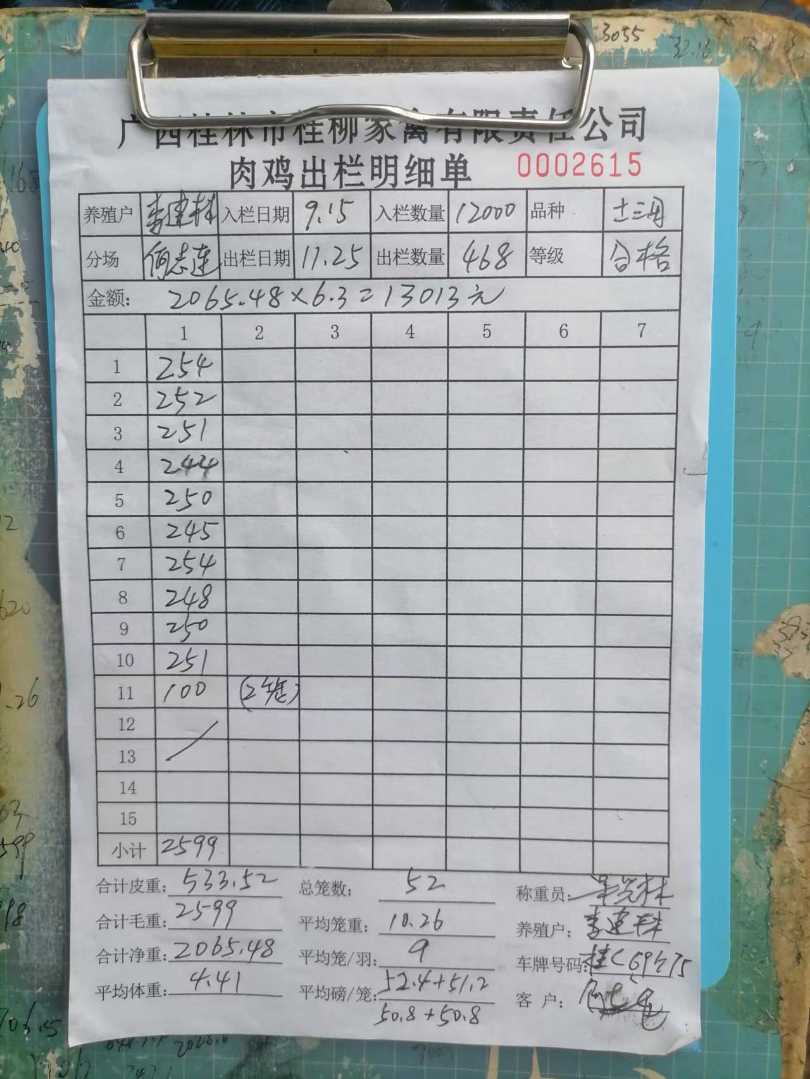 3055
广西桂林市桂柳家禽有限责任公司
肉鸡出栏明细单 0002615
养殖户 李建林 入栏日期 9.15 入栏数量 12000 品种 土三月
分场 何志连 出栏日期 11.25 出栏数量 468 等级 合格
金额: 2065.48×6.3=13013元
1 2 3 4 5 6 7
1 254
2 252
3 251
4 244
5 250
6 245
7 254
8 248
9 250
10 251
11 100 (2笼)
12
13
14
15
小计 2599
合计皮重: 533.52 总笼数: 52 称重员:
合计毛重: 2599 平均笼重: 10.26 养殖户: 李建林
合计净重: 2065.48 平均笼/羽: 9 车牌号码: 桂C69475
平均体重: 4.41 平均磅/笼: 52.4+51.2 客户:
50.8+50.8